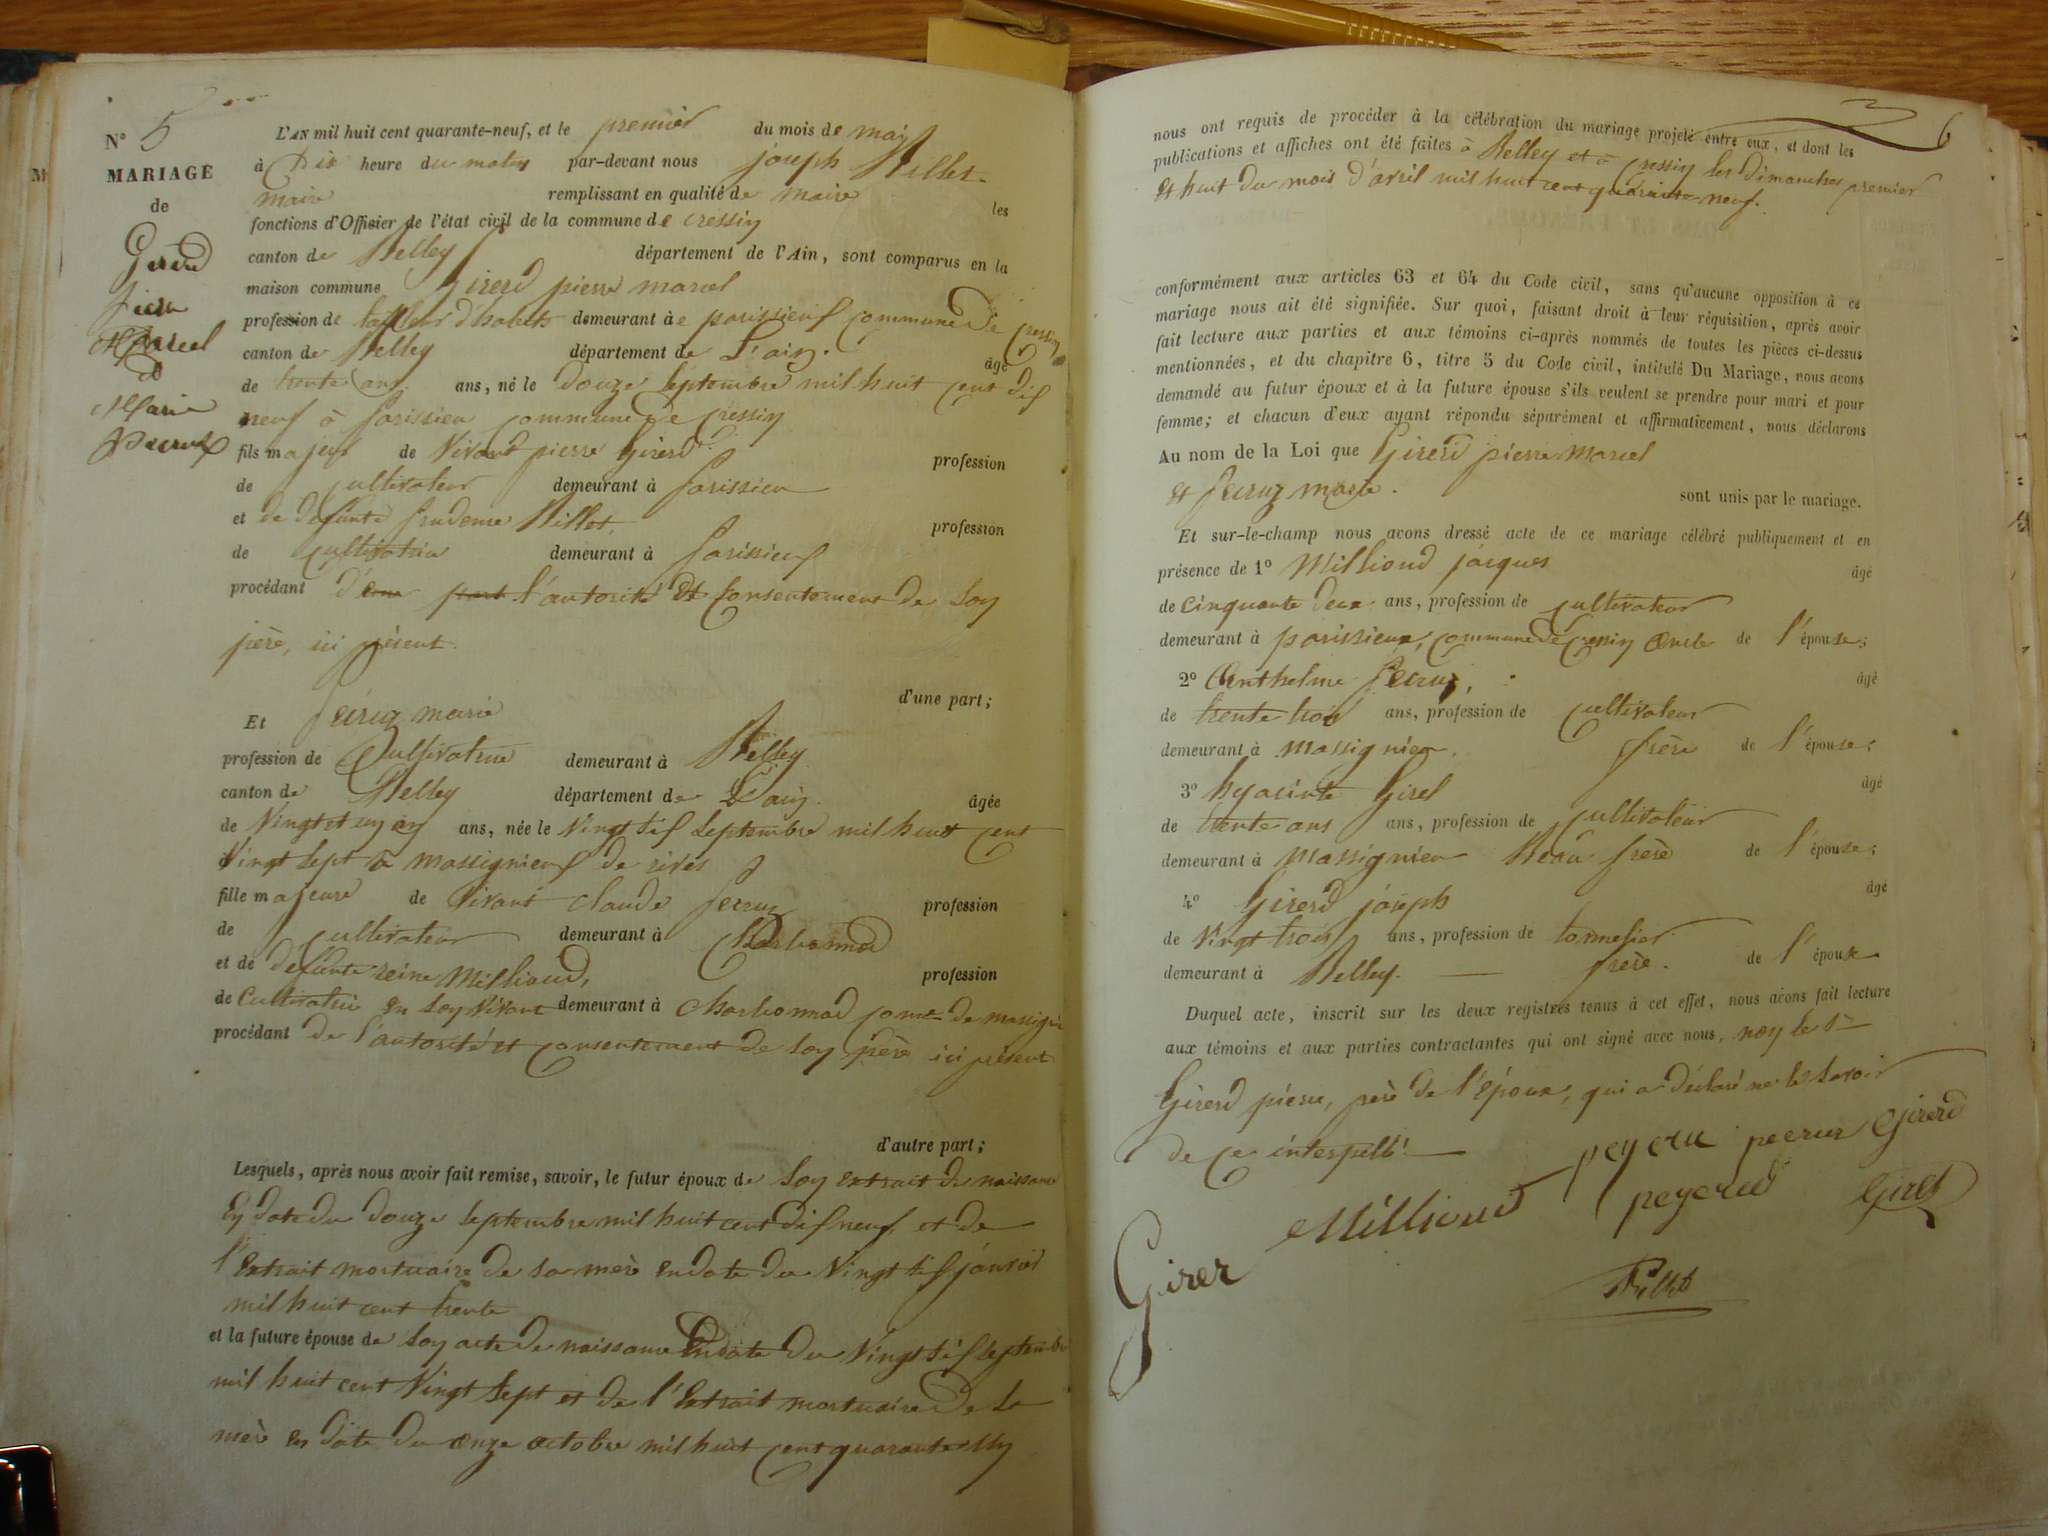 N° 5
MARIAGE
de
Girerd
pierre
Marcel
et
Marie
Pecruz
L'AN mil huit cent quarante-neuf, et le premier du mois de mai
à Dix heure du matin par-devant nous joseph Billet
maire remplissant en qualité de maire les
fonctions d'Officier de l'état civil de la commune de Cressin
canton de Belley département de l'Ain, sont comparus en la
maison commune Girerd pierre marcel
profession de tailleur d'habits demeurant à parissieux commune de Cressin
canton de Belley département de L'ain. âgé
de trente ans ans, né le douze septembre mil huit cent dix
neuf à parissieu commune de Cressin
fils majeur de Vivant pierre Girerd
profession
de Cultivateur demeurant à parissieu
et de défunte prudence Billet profession
de Cultivatrice demeurant à parissieux
procédant de l'autorité et Consentement de son
père, ici présent.
d'une part;
Et Pecruz marie
profession de Cultivatrice demeurant à Belley
canton de Belley département de L'ain. âgée
de Vingt et un an ans, née le Vingt six septembre mil huit cent
Vingt sept à massignieux de rives
fille majeure de Vivant Claude Pecruz profession
de Cultivateur demeurant à Charbonnod
et de défunte reine Milliond, profession
de Cultivatrice en son vivant demeurant à Charbonnod comne de massignieu
procédant de l'autorité et consentement de son père ici présent
d'autre part;
Lesquels, après nous avoir fait remise, savoir, le futur époux de son extrait de naissance
En date du douze septembre mil huit cent dix neuf, et de
l'Extrait mortuaire de sa mère en date du Vingt six janvier
mil huit cent trente
et la future épouse de son acte de naissance En date du Vingt six septembre
mil huit cent Vingt sept et de l'Extrait mortuaire de sa
mère en date du onze octobre mil huit cent quarante un
6
nous ont requis de procéder à la célébration du mariage projeté entre eux, et dont les
publications et affiches ont été faites à Belley et à Cressin les dimanches premier
et huit du mois d'avril mil huit cent quarante neuf.
conformément aux articles 63 et 64 du Code civil, sans qu'aucune opposition à ce
mariage nous ait été signifiée. Sur quoi, faisant droit à leur réquisition, après avoir
fait lecture aux parties et aux témoins ci-après nommés de toutes les pièces ci-dessus
mentionnées, et du chapitre 6, titre 5 du Code civil, intitulé Du Mariage, nous avons
demandé au futur époux et à la future épouse s'ils veulent se prendre pour mari et pour
femme; et chacun d'eux ayant répondu séparément et affirmativement, nous déclarons
Au nom de la Loi que Girerd pierre marcel
et Pecruz marie. sont unis par le mariage.
Et sur-le-champ nous avons dressé acte de ce mariage célébré publiquement et en
présence de 1° Milliond jacques âgé
de Cinquante deux ans, profession de Cultivateur
demeurant à parissieux, commune de Cressin oncle de l'épouse;
2° Anthelme Pecruz, âgé
de trente trois ans, profession de Cultivateur
demeurant à massignieu. frère de l'épouse;
3° hyacinte Girel âgé
de trente ans ans, profession de Cultivateur
demeurant à massignieu Beau frère de l'épouse;
4° Girerd joseph âgé
de Vingt trois ans, profession de tonnelier
demeurant à Belley. frère. de l'époux
Duquel acte, inscrit sur les deux registres tenus à cet effet, nous avons fait lecture
aux témoins et aux parties contractantes qui ont signé avec nous, non le Sr
Girerd pierre, père de l'époux, qui a déclaré ne le savoir
de ce interpellé.
peyeru pecruz Girerd
Milliond peyerud Girel
Girer
Billet